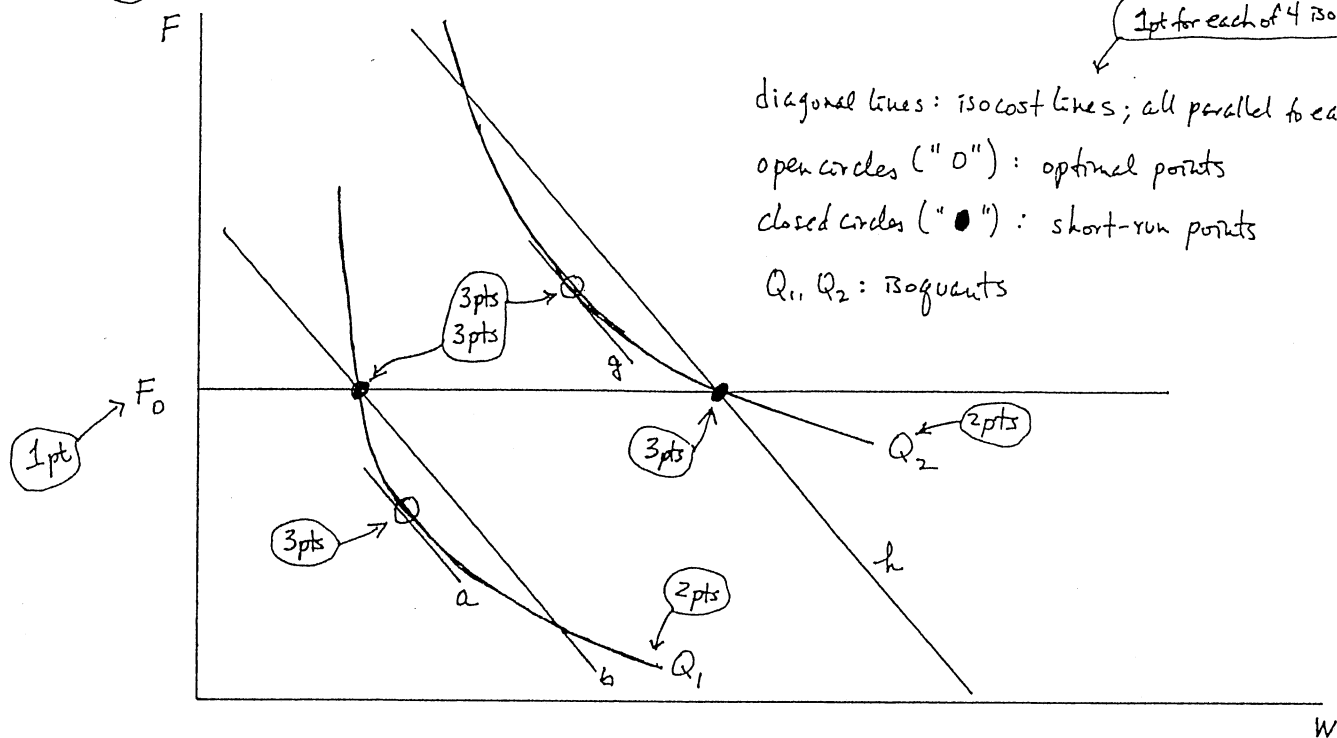 1pt for each of 4 iso
F
diagonal lines: isocost lines; all parallel to ea
open circles ("O"): optimal points
closed circles ("●"): short-run points
Q₁, Q₂: isoquants
3pts
3pts
g
F₀
1pt
3pts
Q₂
2pts
3pts
a
h
2pts
b
Q₁
W